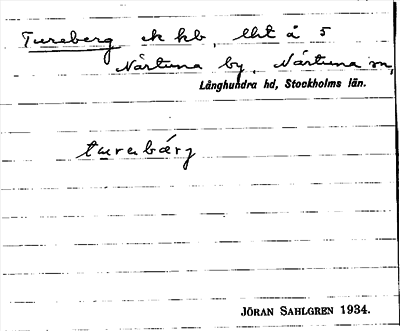 Tureberg ek kb, lht å 5
Närtuna by, Närtuna sn,
Långhundra hd, Stockholms län.
turebärg
JÖRAN SAHLGREN 1934.